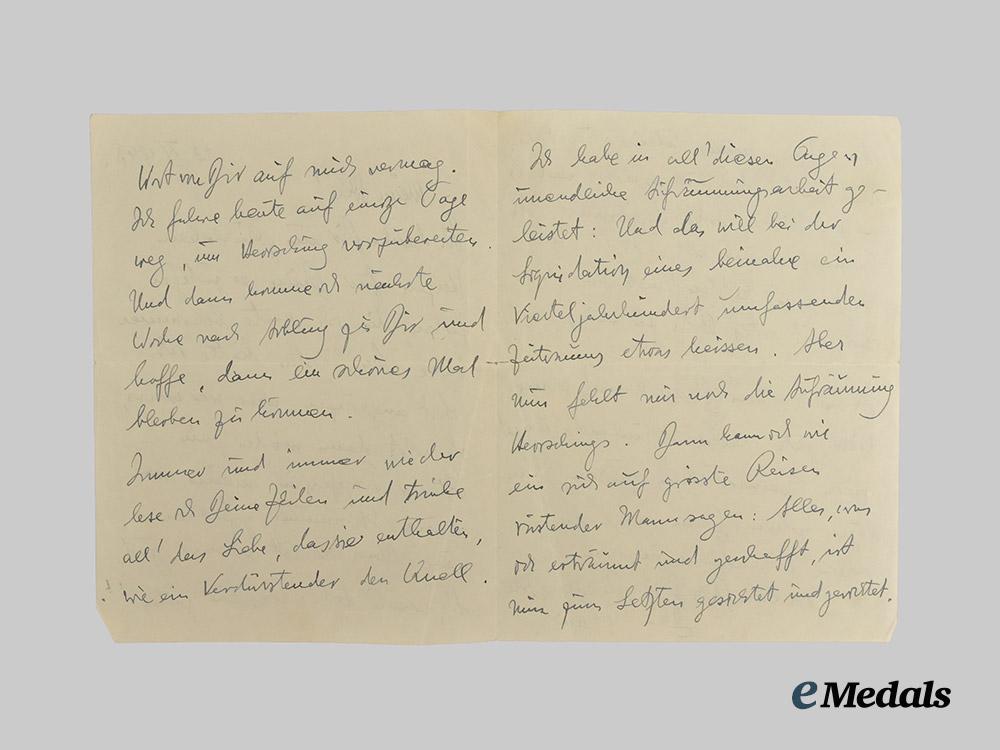 Wort von Dir auf mich vermag.
Ich fahre heute auf einige Tage
weg, um Herrsching vorzubereiten.
Und dann komme ich nächste
Woche nach zu Dir und
hoffe, dann ein schönes Mal
bleiben zu können.
Immer und immer wieder
lese ich Deine Zeilen und trinke
all' das Liebe, das sie enthalten,
wie ein Verdürstender den Quell.
Ich habe in all' diesen Tagen
unendliche Aufräumungsarbeit ge-
leistet: Und das will bei der
Liquidation eines beinahe ein
Vierteljahrhundert umfassenden
Zeitraums etwas heissen. Aber
nun fehlt nur noch die Aufräumung
Herrschings. Dann kann ich wie
ein sich auf grösste Reisen
rüstender Mann sagen: Alles, was
ich erträumt und geschafft, ist
nun zum Letzten gesichtet und gerichtet.
eMedals